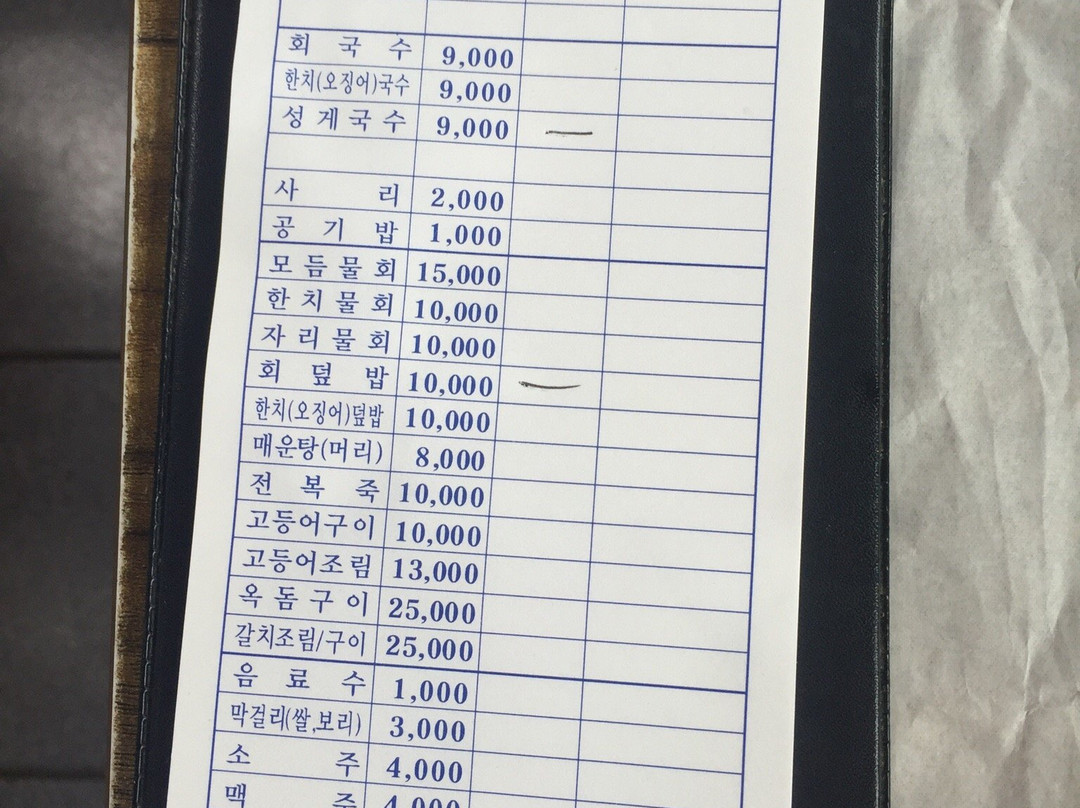 회국수 9,000
한치(오징어)국수 9,000
성게국수 9,000 —
사리 2,000
공기밥 1,000
모듬물회 15,000
한치물회 10,000
자리물회 10,000
회덮밥 10,000 —
한치(오징어)덮밥 10,000
매운탕(머리) 8,000
전복죽 10,000
고등어구이 10,000
고등어조림 13,000
옥돔구이 25,000
갈치조림/구이 25,000
음료수 1,000
막걸리(쌀,보리) 3,000
소주 4,000
맥주 4,000